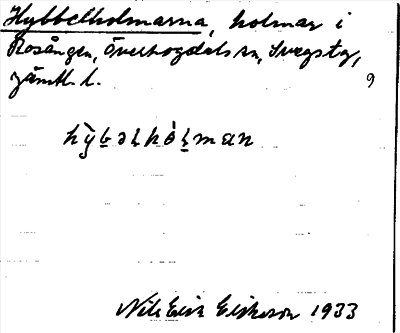 Hybbelholmarna, holmar i
Rosången, Överhogdals sn, Svegs tg,
Jämtl. l.
9
hỳb̠əlhól̠man
Nils Eric Eriksson 1933